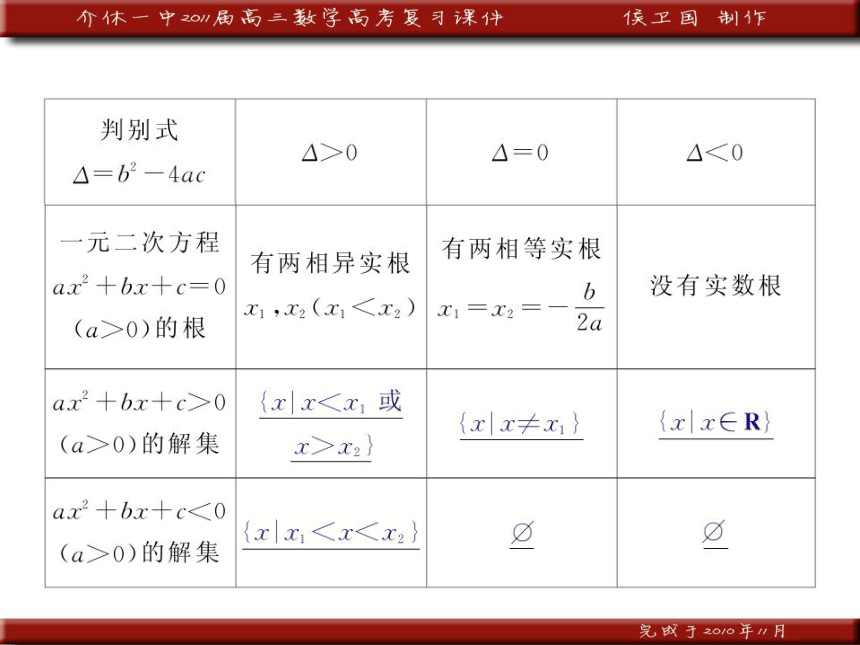 介休一中2011届高三数学高考复习课件 侯卫国 制作
判别式
Δ=b²-4ac
Δ>0
Δ=0
Δ<0
一元二次方程
ax²+bx+c=0
(a>0)的根
有两相异实根
x₁,x₂(x₁<x₂)
有两相等实根
x₁=x₂=-b/2a
没有实数根
ax²+bx+c>0
(a>0)的解集
{x|x<x₁ 或
x>x₂}
{x|x≠x₁}
{x|x∈R}
ax²+bx+c<0
(a>0)的解集
{x|x₁<x<x₂}
∅
∅
完成于2010年11月